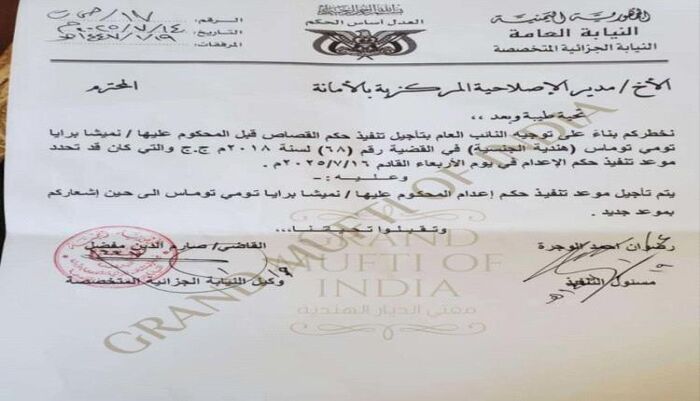 الجمهورية اليمنية
النيابة العامة
النيابة الجزائية المتخصصة
العدل أساس الحكم
الرقم:
التاريخ:
المرفقات:
الأخ/ مدير الإصلاحية المركزية بالأمانة المحترم
تحية طيبة وبعد ،،
نخطركم بناءً على توجيه النائب العام بتأجيل تنفيذ حكم القصاص قبل المحكوم عليها/ نميشا برايا
تومي توماس (هندية الجنسية) في القضية رقم (٦٨) لسنة ٢٠١٨م ج.ج والتي كان قد تحدد
موعد تنفيذ حكم الإعدام في يوم الأربعاء القادم ٢٠٢٥/٧/١٦م.
وعليه:-
يتم تأجيل موعد تنفيذ حكم إعدام المحكوم عليها/ نميشا برايا تومي توماس الى حين إشعاركم
بموعد جديد .
وتقبلوا تحيتنا...
رضوان احمد الوجرة
القاضي/ صارم الدين مفضل
مسئول التنفيذ
وكيل النيابة الجزائية المتخصصة
GRAND MUFTI OF INDIA
GRAND
MUFTI OF
INDIA
مفتي الديار الهندية